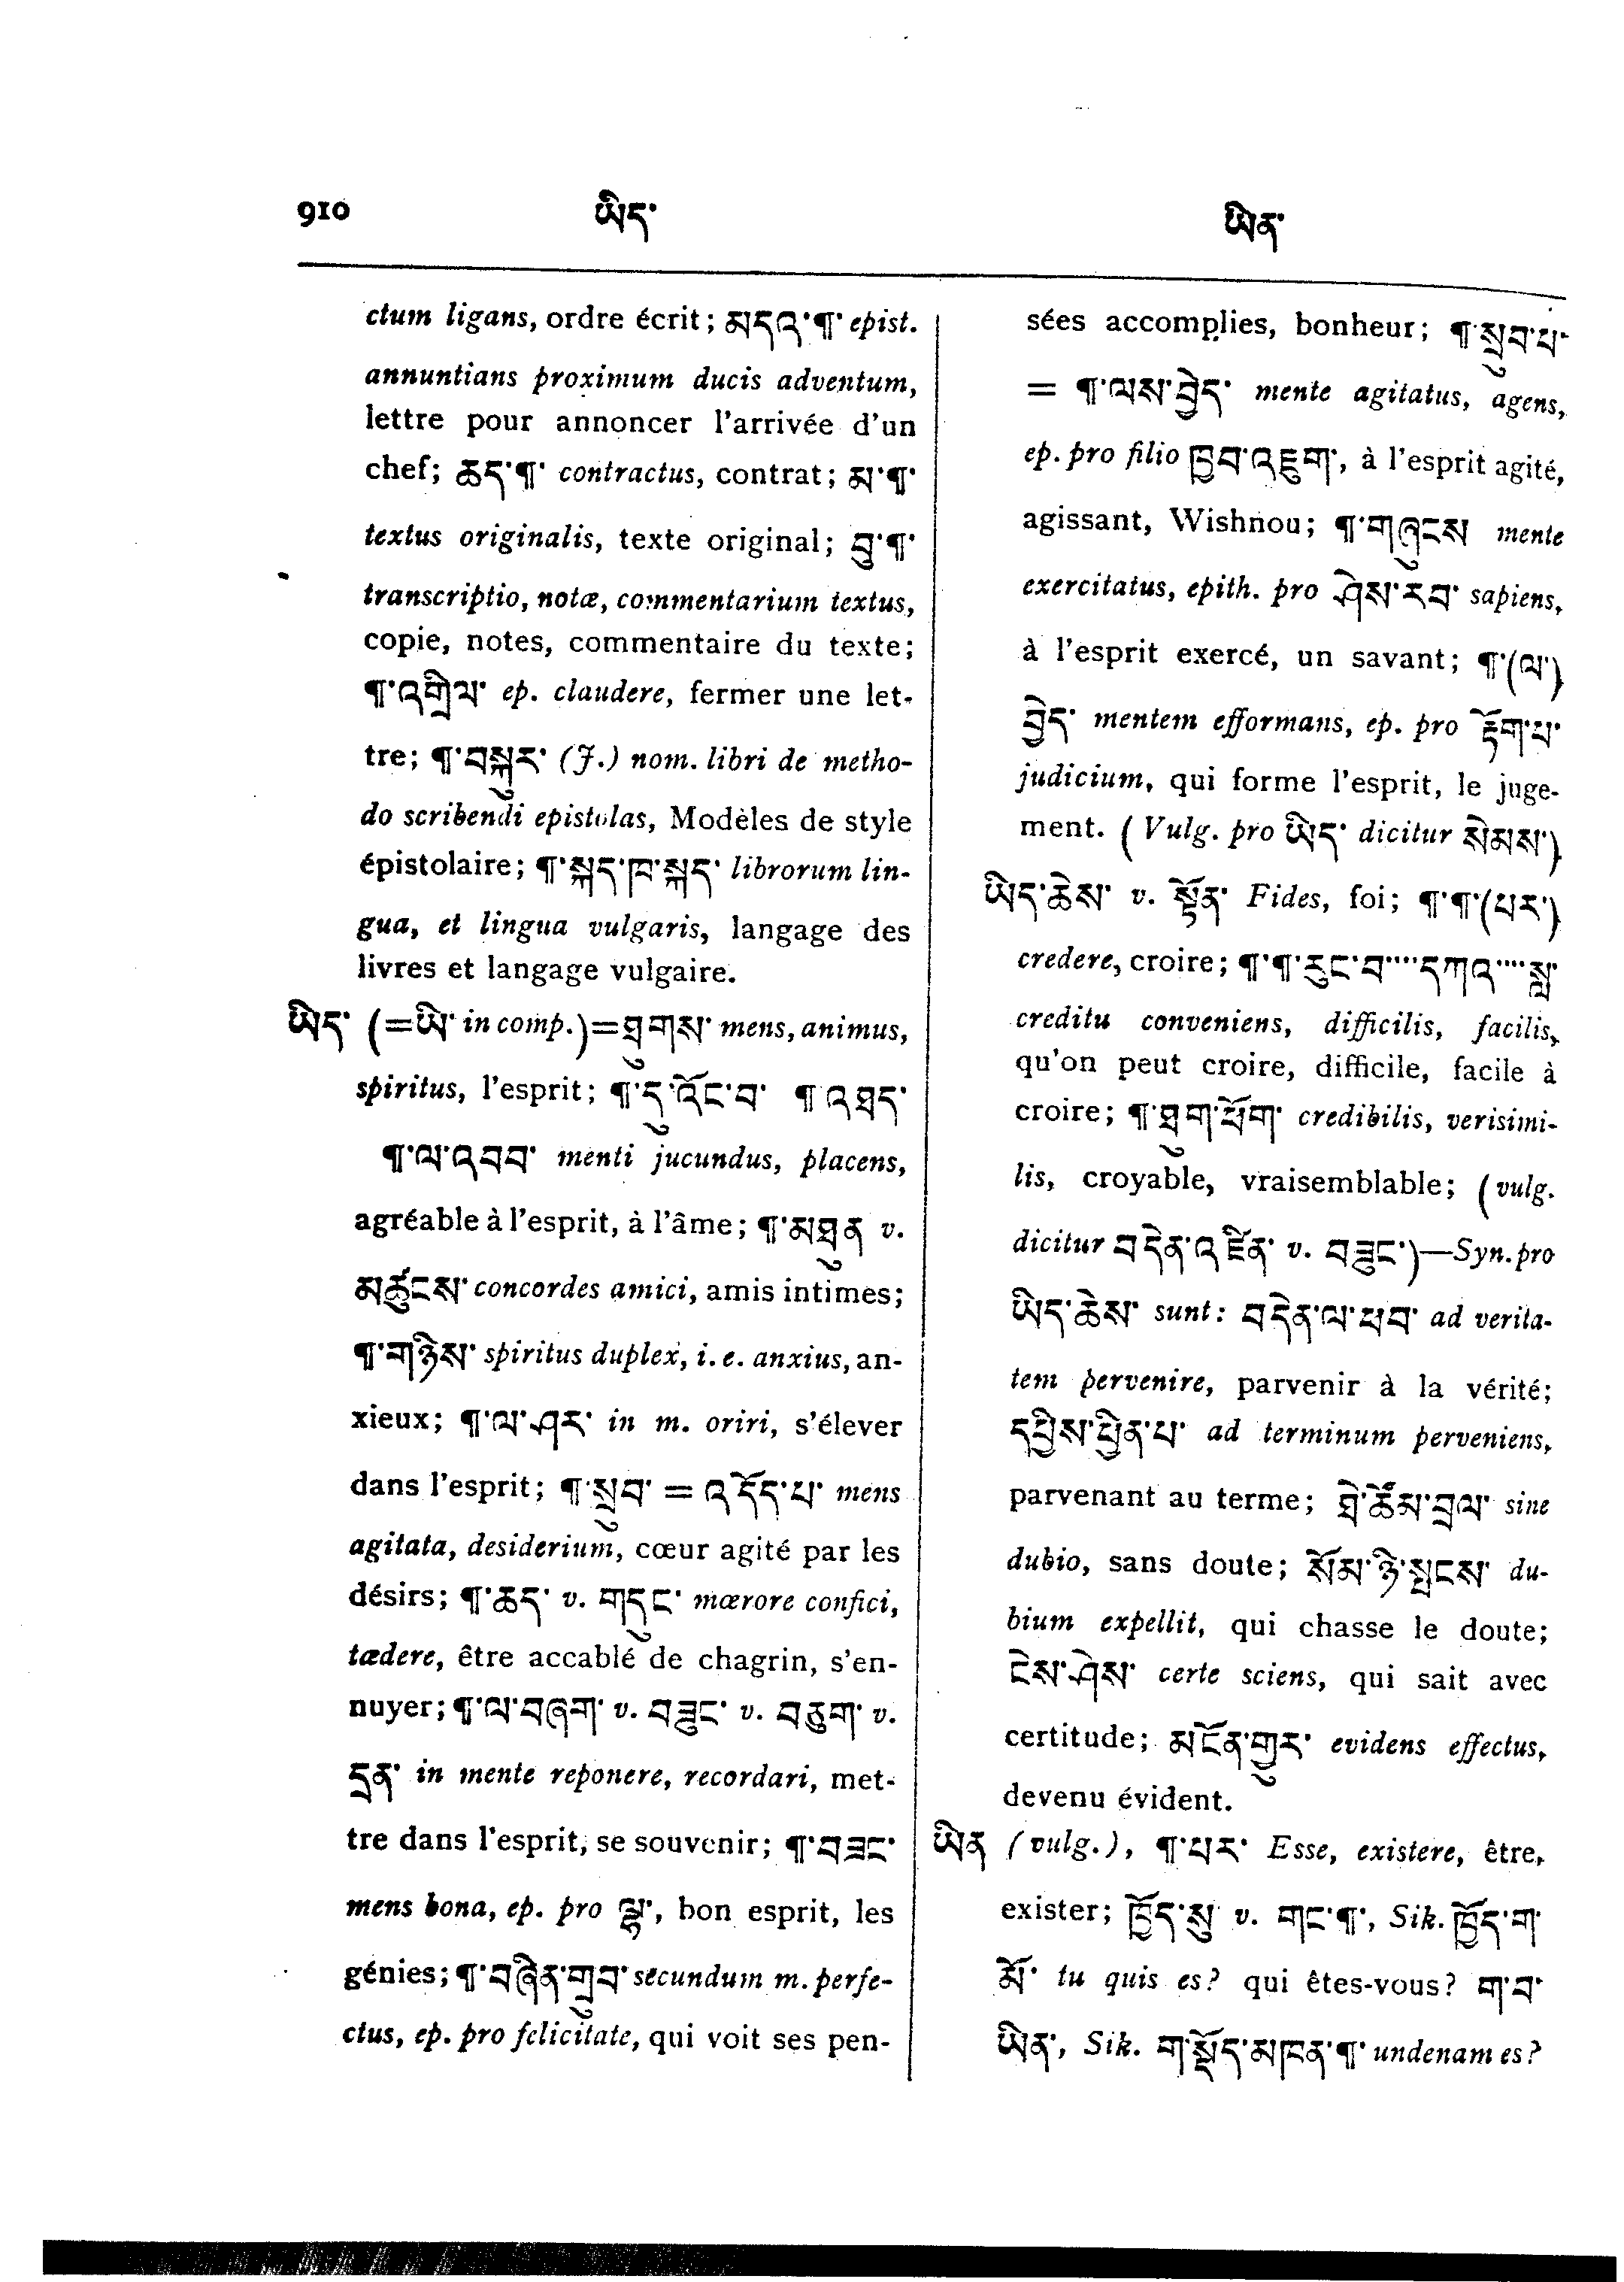 910
ཡིད་
ཡིན་
ctum ligans, ordre écrit; མདའ་¶་ epist.
annuntians proximum ducis adventum,
lettre pour annoncer l'arrivée d'un
chef; ཆད་¶་ contractus, contrat; མ་¶་
textus originalis, texte original; བུ་¶་
transcriptio, notæ, commentarium textus,
copie, notes, commentaire du texte;
¶་འགྲིལ་ ep. claudere, fermer une let-
tre; ¶་བསྐུར་ (J.) nom. libri de metho-
do scribendi epistolas, Modèles de style
épistolaire; ¶་སྐད་ཁ་སྐད་ librorum lin-
gua, et lingua vulgaris, langage des
livres et langage vulgaire.
ཡིད་ (=ཡི་ in comp.)=ཐུགས་ mens, animus,
spiritus, l'esprit; ¶་དུ་འོང་བ་ ¶ འཐད་
¶་ལ་འབབ་ menti jucundus, placens,
agréable à l'esprit, à l'âme; ¶་མཐུན v.
མཚུངས་ concordes amici, amis intimes;
¶་གཉིས་ spiritus duplex, i. e. anxius, an-
xieux; ¶་ལ་ཤར་ in m. oriri, s'élever
dans l'esprit; ¶་སྲུབ་ = འདོད་པ་ mens
agitata, desiderium, cœur agité par les
désirs; ¶་ཆད་ v. གདུང་ mœrore confici,
tædere, être accablé de chagrin, s'en-
nuyer; ¶་ལ་བཞག་ v. བཟུང་ v. བཅུག་ v.
དྲན་ in mente reponere, recordari, met-
tre dans l'esprit, se souvenir; ¶་བཟང་
mens bona, ep. pro ལྷ་, bon esprit, les
génies; ¶་བཞིན་གྲུབ་ secundum m. perfe-
ctus, ep. pro felicitate, qui voit ses pen-
sées accomplies, bonheur; ¶་སྲུབ་པ་
= ¶་ལས་བྱེད་ mente agitatus, agens,
ep. pro filio ཁྱབ་འཇུག་, à l'esprit agité,
agissant, Wishnou; ¶་གཞུངས mente
exercitatus, epith. pro ཤེས་རབ་ sapiens,
à l'esprit exercé, un savant; ¶་(ལ་)
བྱེད་ mentem efformans, ep. pro རྟོག་པ་
judicium, qui forme l'esprit, le juge-
ment. (Vulg. pro ཡིད་ dicitur སེམས་)
ཡིད་ཆེས་ v. སྟོན་ Fides, foi; ¶་¶་(པར་)
credere, croire; ¶་¶་རུང་བ་་་་དཀའ་་་་སླ་
creditu conveniens, difficilis, facilis,
qu'on peut croire, difficile, facile à
croire; ¶་ཐུག་ཕོག་ credibilis, verisimi-
lis, croyable, vraisemblable; (vulg.
dicitur བདེན་འཛིན་ v. བཟུང་)—Syn. pro
ཡིད་ཆེས་ sunt: བདེན་ལ་ཕབ་ ad verita-
tem pervenire, parvenir à la vérité;
དཕྱིས་ཕྱིན་པ་ ad terminum perveniens,
parvenant au terme; ཐེ་ཚོམ་བྲལ་ sine
dubio, sans doute; སོམ་ཉི་སྤངས་ du-
bium expellit, qui chasse le doute;
ངེས་ཤེས་ certe sciens, qui sait avec
certitude; མངོན་གྱུར་ evidens effectus,
devenu évident.
ཡིན (vulg.), ¶་པར་ Esse, existere, être,
exister; ཁྱོད་སུ v. གང་¶་, Sik. ཁྱོད་ག་
མོ་ tu quis es? qui êtes-vous? ག་བ་
ཡིན་, Sik. ག་སྡོད་མཁན་¶་ undenam es?